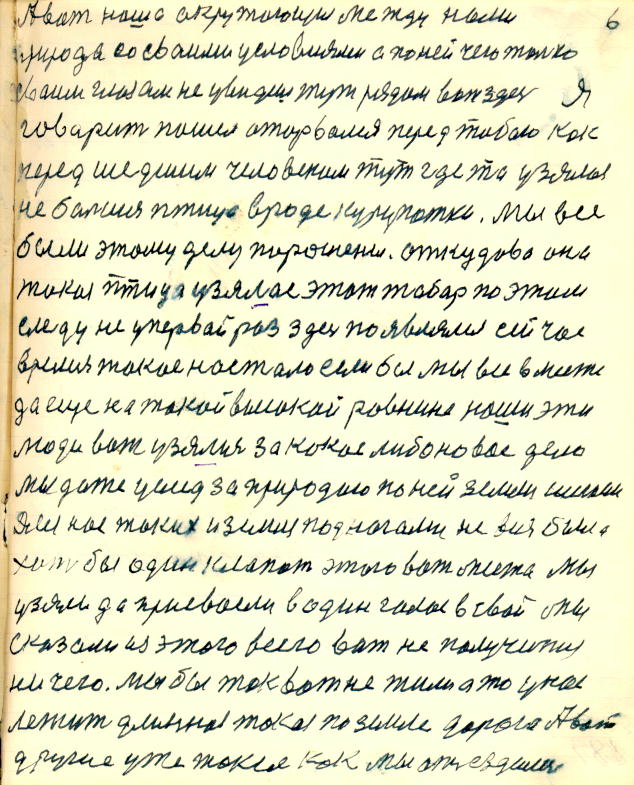 Авот наша окружающия между нами 6
природа сосваими условиями а поней чего толко
сваим глазам не увидеш тут рядам вот здеся Я
говарит пошел оторвался перед табаю как
перед шедшим человеком тут где та узялас
не балшия птица вроде курупатки. Мы все
были этому делу порожены. откудова она
такая птица узялас этот табар по этам
следу не упервай раз здес появлялся сейчас
время такое настало если бы мы все вместе
да еще на такой високай ровнине наши эти
люди вот узялис за какое либо новое дело
мы даже услед за природаю по ней земли
Яси нас таких и земля под нагами не вся была
хотя бы один клапот этого вот места мы
узяли да присвоели в один голос в свой мы
сказали из этого всего ват не получится
ни чего. мы бы так вот не жили а то у нас
лежит длинная такая по земле дорога Авот
другие уже такие как мы отъездили